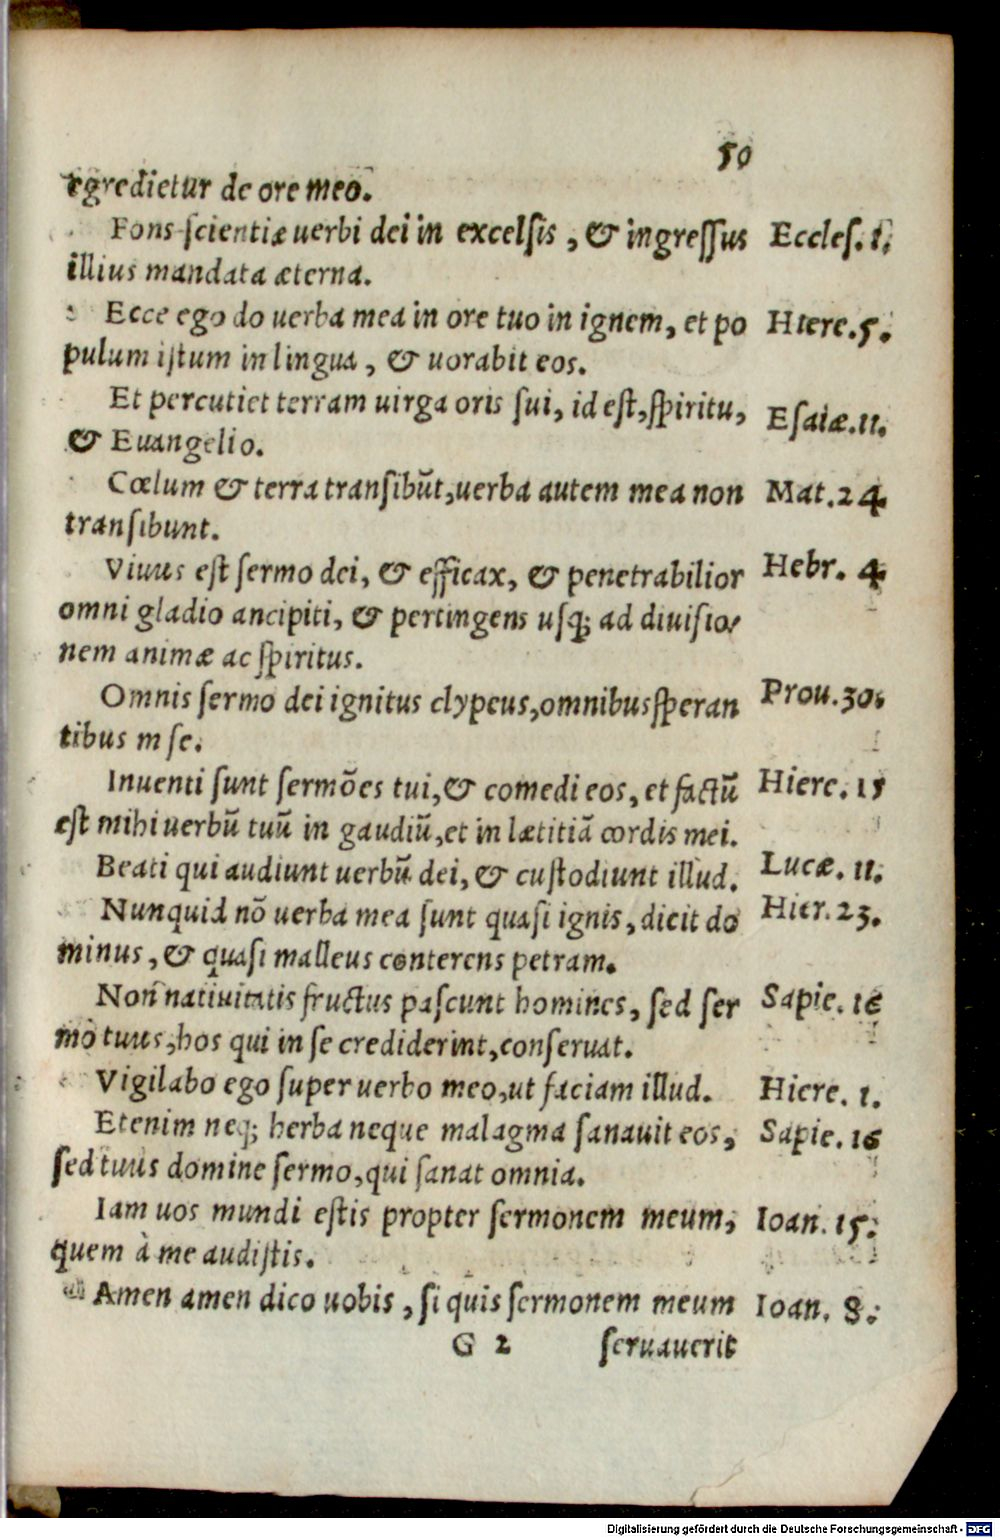 50
egredietur de ore meo.
Fons scientiæ uerbi dei in excelsis, & ingressus Eccles. 1.
illius mandata æterna.
Ecce ego do uerba mea in ore tuo in ignem, et po Hiere. 5.
pulum istum in lingua, & uorabit eos.
Et percutiet terram uirga oris sui, id est, spiritu, Esaiæ. 11.
& Euangelio.
Cœlum & terra transibūt, uerba autem mea non Mat. 24
transibunt.
Viuus est sermo dei, & efficax, & penetrabilior Hebr. 4
omni gladio ancipiti, & pertingens usq; ad diuisio/
nem animæ ac spiritus.
Omnis sermo dei ignitus clypeus, omnibus speran Prou. 30.
tibus in se.
Inuenti sunt sermōes tui, & comedi eos, et factū Hiere. 15
est mihi uerbū tuū in gaudiū, et in lætitiā cordis mei.
Beati qui audiunt uerbū dei, & custodiunt illud. Lucæ. 11.
Nunquid nō uerba mea sunt quasi ignis, dicit do Hier. 23.
minus, & quasi malleus conterens petram.
Non natiuitatis fructus pascunt homines, sed ser Sapie. 16
mo tuus, hos qui in se crediderint, conseruat.
Vigilabo ego super uerbo meo, ut faciam illud. Hiere. 1.
Etenim neq; herba neque malagma sanauit eos, Sapie. 16
sed tuus domine sermo, qui sanat omnia.
Iam uos mundi estis propter sermonem meum, Ioan. 15.
quem à me audistis.
Amen amen dico uobis, si quis sermonem meum Ioan. 8.
G 2 seruauerit
Digitalisierung gefördert durch die Deutsche Forschungsgemeinschaft - DFG